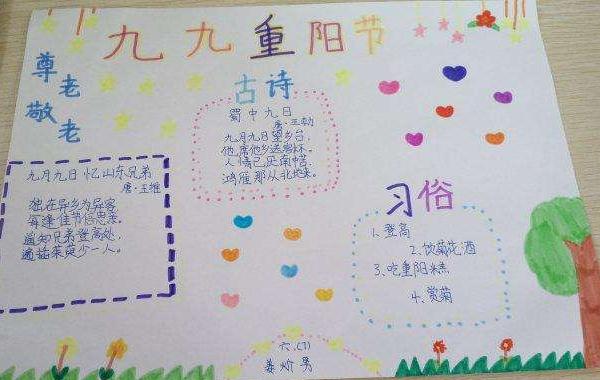 九九重阳节
尊老
敬老
古诗
蜀中九日
唐·王勃
九月九日望乡台,
他席他乡送客杯。
人情已厌南中苦,
鸿雁那从北地来。
九月九日忆山东兄弟
唐·王维
独在异乡为异客
每逢佳节倍思亲。
遥知兄弟登高处,
遍插茱萸少一人。
习俗
1.登高
2.饮菊花酒
3.吃重阳糕
4.赏菊
六.(1)